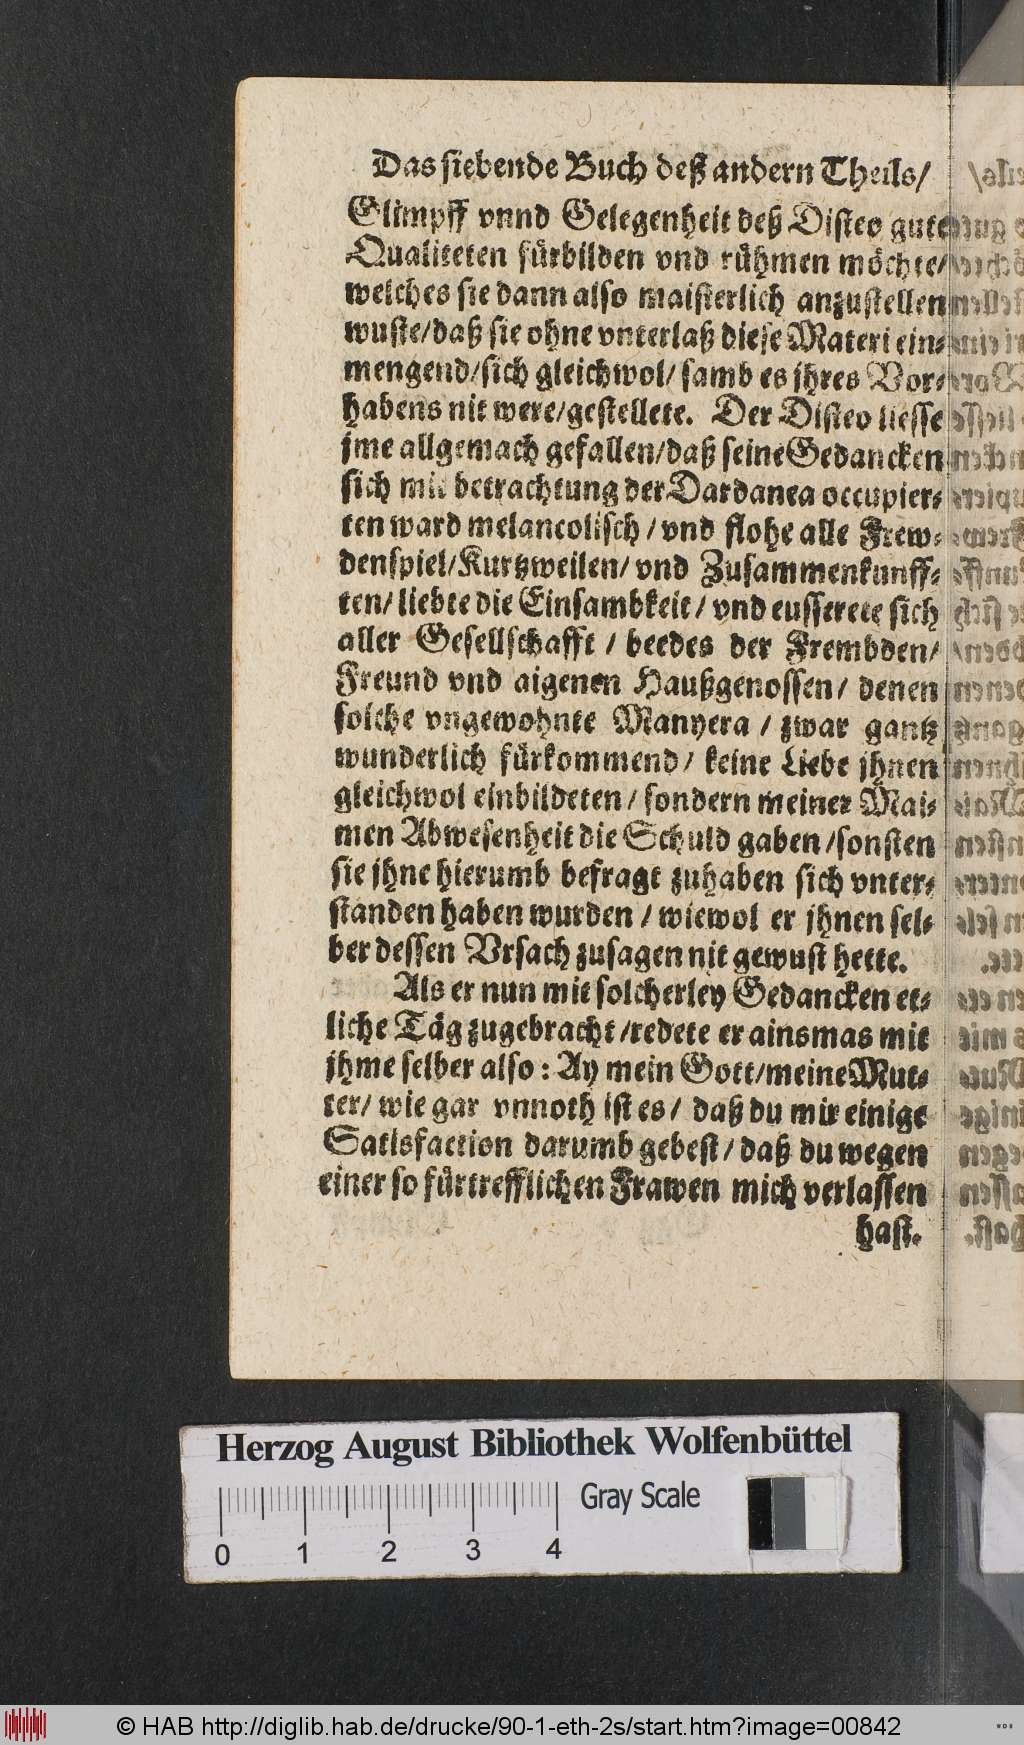 Das siebende Buch deß andern Theils/
Glimpff vnnd Gelegenheit deß Disteo gute
Qualiteten fürbilden vnd rühmen möchte/
welches sie dann also maisterlich anzustellen
wuste/daß sie ohne vnterlaß diese Materi ein-
mengend/sich gleichwol/ samb es jhres Vor-
habens nit were/gestellete. Der Disteo liesse
jme allgemach gefallen/daß seine Gedancken
sich mit betrachtung der Dardanea occupier-
ten ward melancolisch / vnd flohe alle Frew-
denspiel/Kurtzweilen/ vnd Zusammenkunff-
ten/ liebte die Einsambkeit / vnd eusserete sich
aller Gesellschafft / beedes der Frembden/
Freund vnd aigenen Haußgenossen/ denen
solche vngewohnte Manyera / zwar gantz
wunderlich fürkommend/ keine Liebe jhnen
gleichwol einbildeten/ sondern meiner Mai-
men Abwesenheit die Schuld gaben /sonsten
sie jhne hierumb befragt zuhaben sich vnter-
standen haben wurden / wiewol er jhnen sel-
ber dessen Vrsach zusagen nit gewust hette.
Als er nun mit solcherley Gedancken et-
liche Täg zugebracht /redete er ainsmas mit
jhme selber also : Ay mein Gott/meine Mut-
ter/ wie gar vnnoth ist es / daß du mir einige
Satisfaction darumb gebest / daß du wegen
einer so fürtrefflichen Frawen mich verlassen
hast.
Herzog August Bibliothek Wolfenbüttel
Gray Scale
0 1 2 3 4
© HAB http://diglib.hab.de/drucke/90-1-eth-2s/start.htm?image=00842